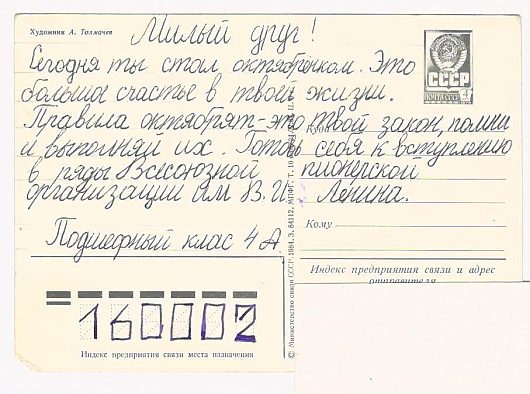 Художник А. Толмачев
Милый друг!
Сегодня ты стал октябрёнком. Это
большое счастье в твоей жизни.
Правила октябрят-это твой закон, помни
и выполняй их. Готовь себя к вступлению
в ряды Всесоюзной пионерской
организации им В. И. Ленина.
Подшефный клас 4 А
СССР
ПОЧТА
4
Куда
Кому
Индекс предприятия связи и адрес
отправителя
160002
Индекс предприятия связи места назначения
© Министерство связи СССР. 1984. З. 84112. МПФГ. Т. 10